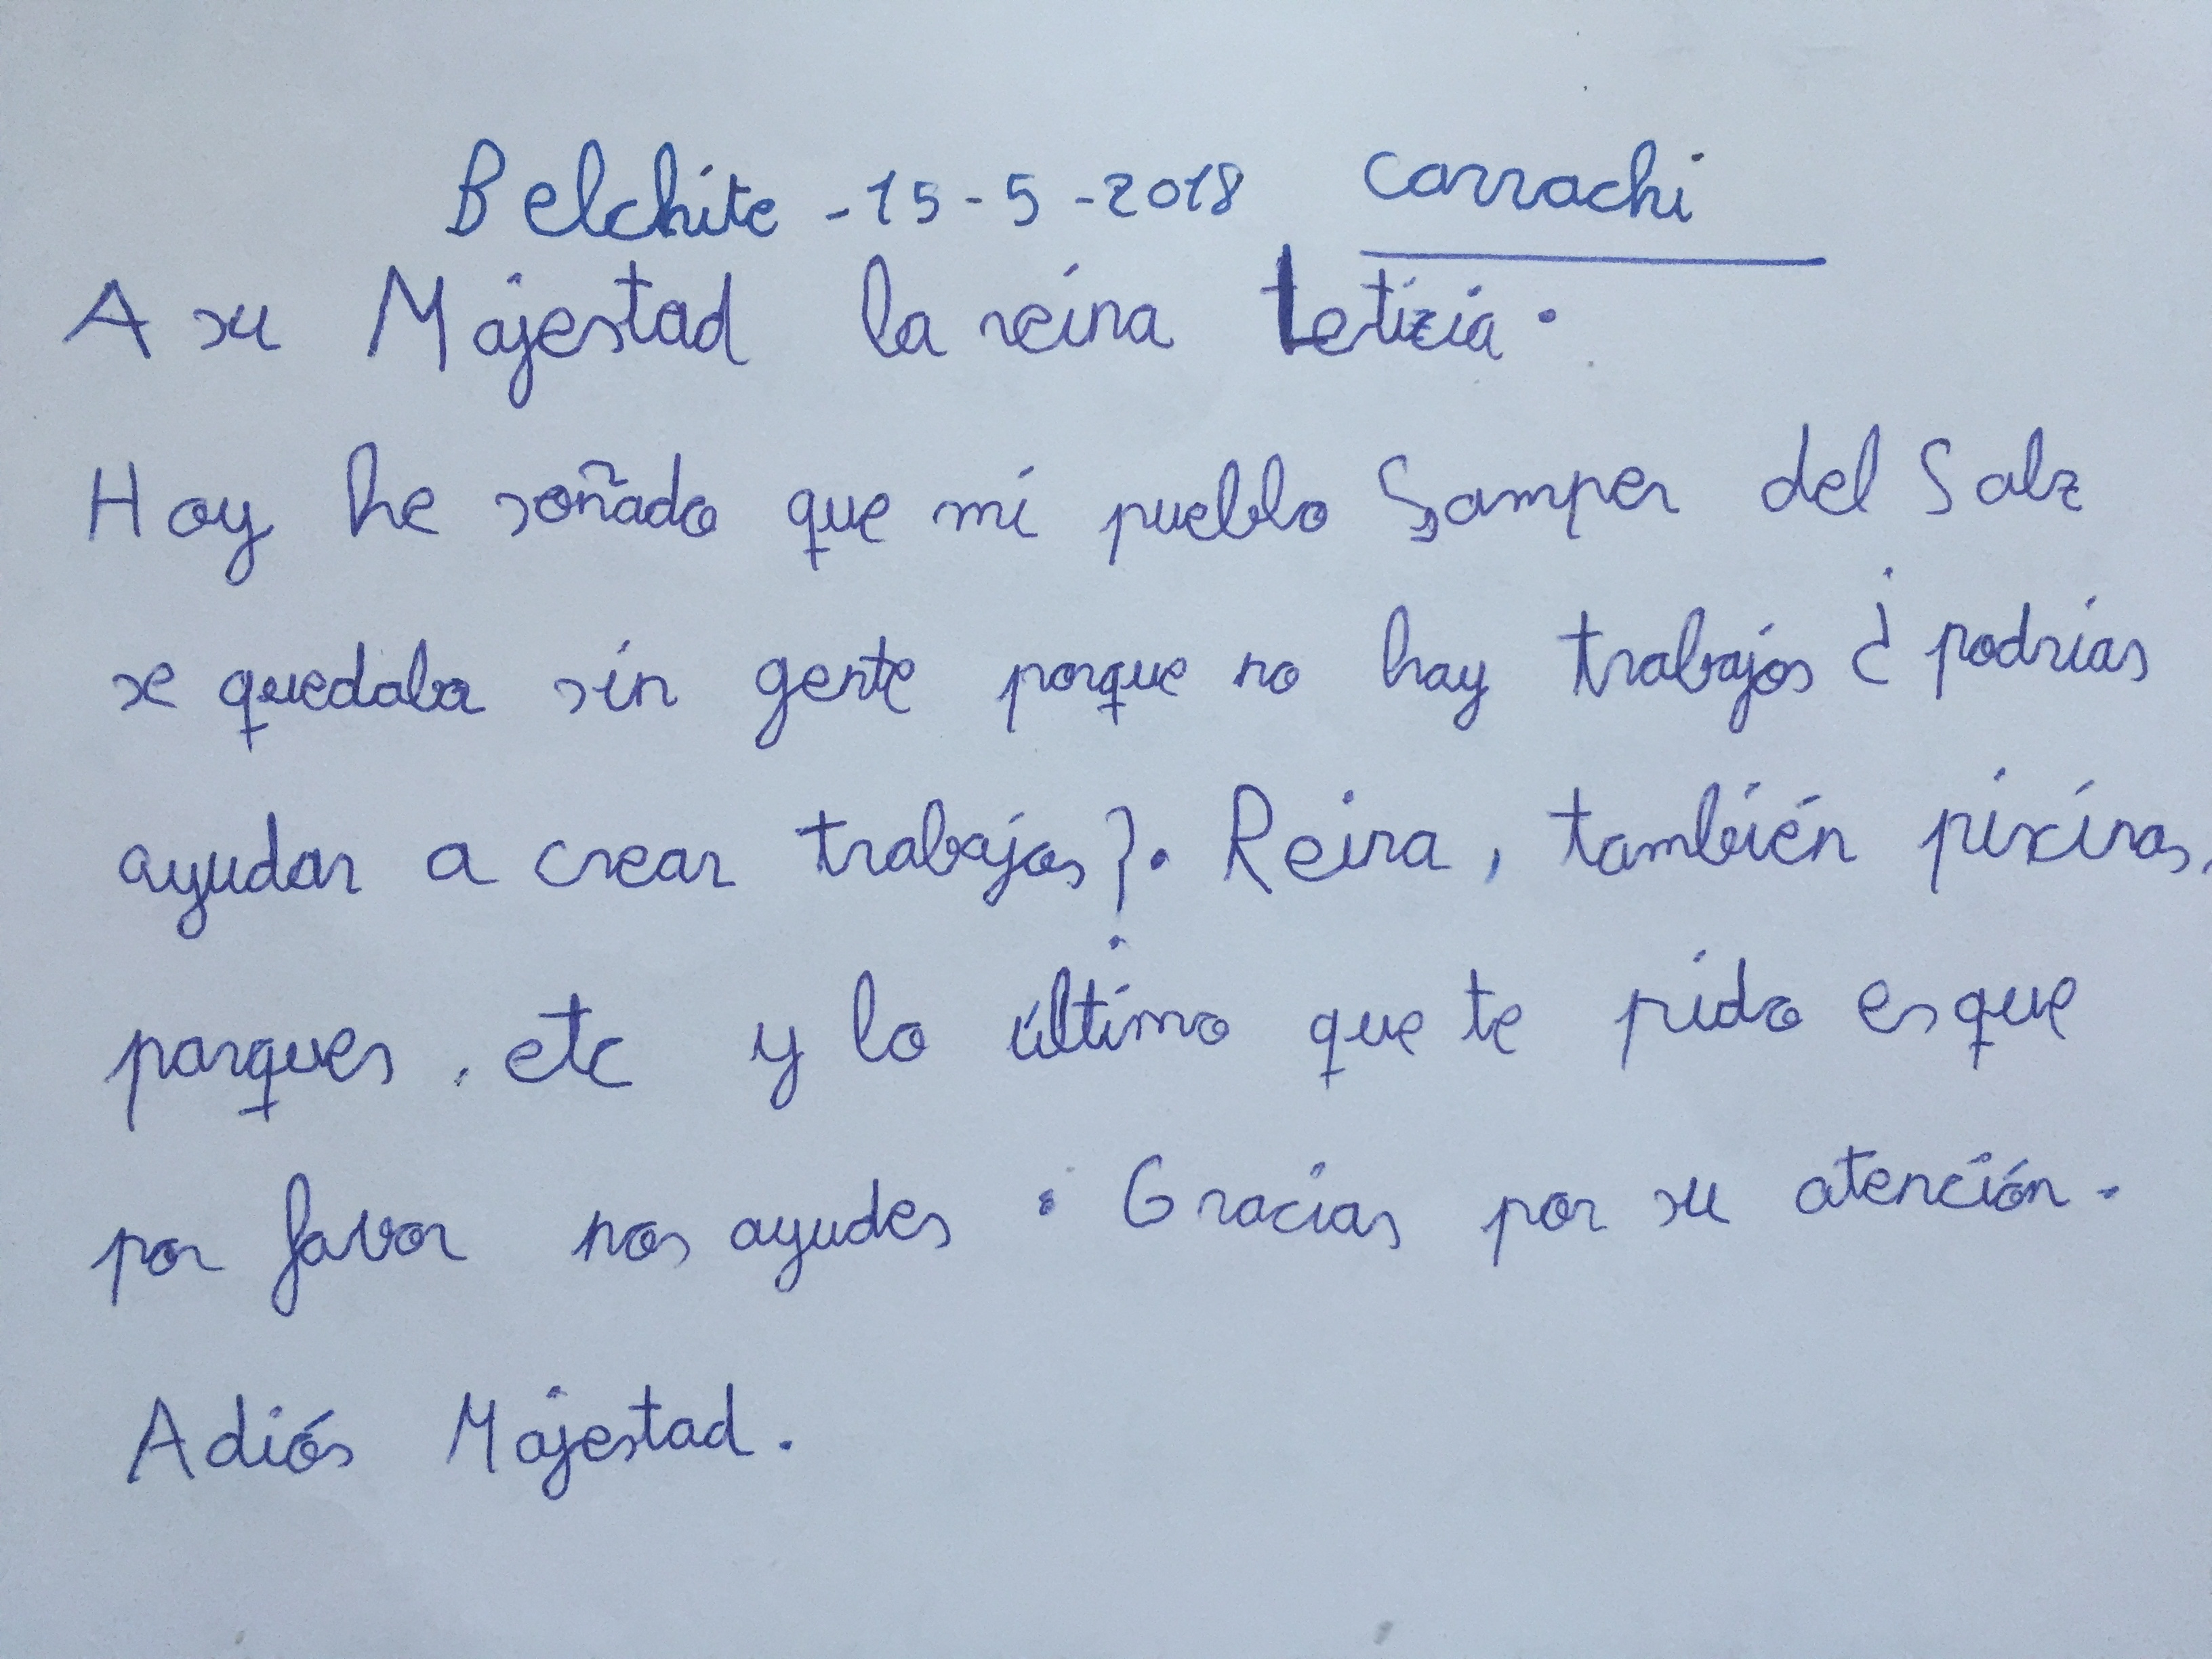 Belchite -15-5-2018 carrachi
A su Majestad la reina Letizia.
Hoy he soñado que mi pueblo Samper del Salz
se quedaba sin gente porque no hay trabajos ¿podrías
ayudar a crear trabajos?. Reina, también piscinas,
parques, etc y lo último que te pido es que
por favor nos ayudes. Gracias por su atención.
Adiós Majestad.